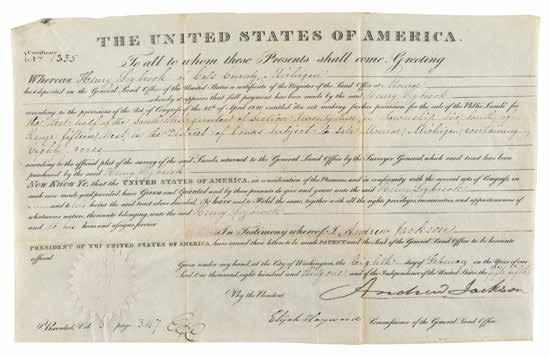 THE UNITED STATES OF AMERICA.
Certificate
No 1335
To all to whom these Presents shall come, Greeting
Whereas Henry Lybrook of Cass County, Michigan
has deposited in the General Land Office of the United States, a certificate of the Register of the Land Office at Monroe
whereby it appears that full payment has been made by the said Henry Lybrook
according to the provisions of the Act of Congress of the 24th of April 1820, entitled An act making further provision for the sale of the Public Lands for
the West half of the South West quadrant of Section Twenty two in Township six South of
Range fifteen West in the District of Lands Subject to Sale Monroe, Michigan, containing
eighty acres
according to the official plat of the survey of the said Lands, returned to the General Land Office by the Surveyor General, which said tract has been
purchased by the said Henry Lybrook
Now Know Ye, that the UNITED STATES OF AMERICA, in consideration of the Premises, and in conformity with the several acts of Congress, in
such case made and provided, have Given and Granted, and by these presents do give and grant, unto the said Henry Lybrook
and to his heirs the said tract above described: To have and to Hold the same, together with all the rights, privileges, immunities and appurtenances of
whatsoever nature, thereunto belonging, unto the said Henry Lybrook
and to his heirs and assigns forever
In Testimony whereof, I Andrew Jackson
PRESIDENT OF THE UNITED STATES OF AMERICA, have caused these Letters to be made PATENT, and the Seal of the General Land Office to be hereunto
affixed
Given under my hand, at the City of Washington, the Eighth day of February in the Year of our
Lord One thousand eight hundred and thirty one and of the Independence of the United States the fifty fifth
By the President.
Andrew Jackson
Elijah Hayward Commissioner of the General Land Office.
Recorded, Vol 3 page 347